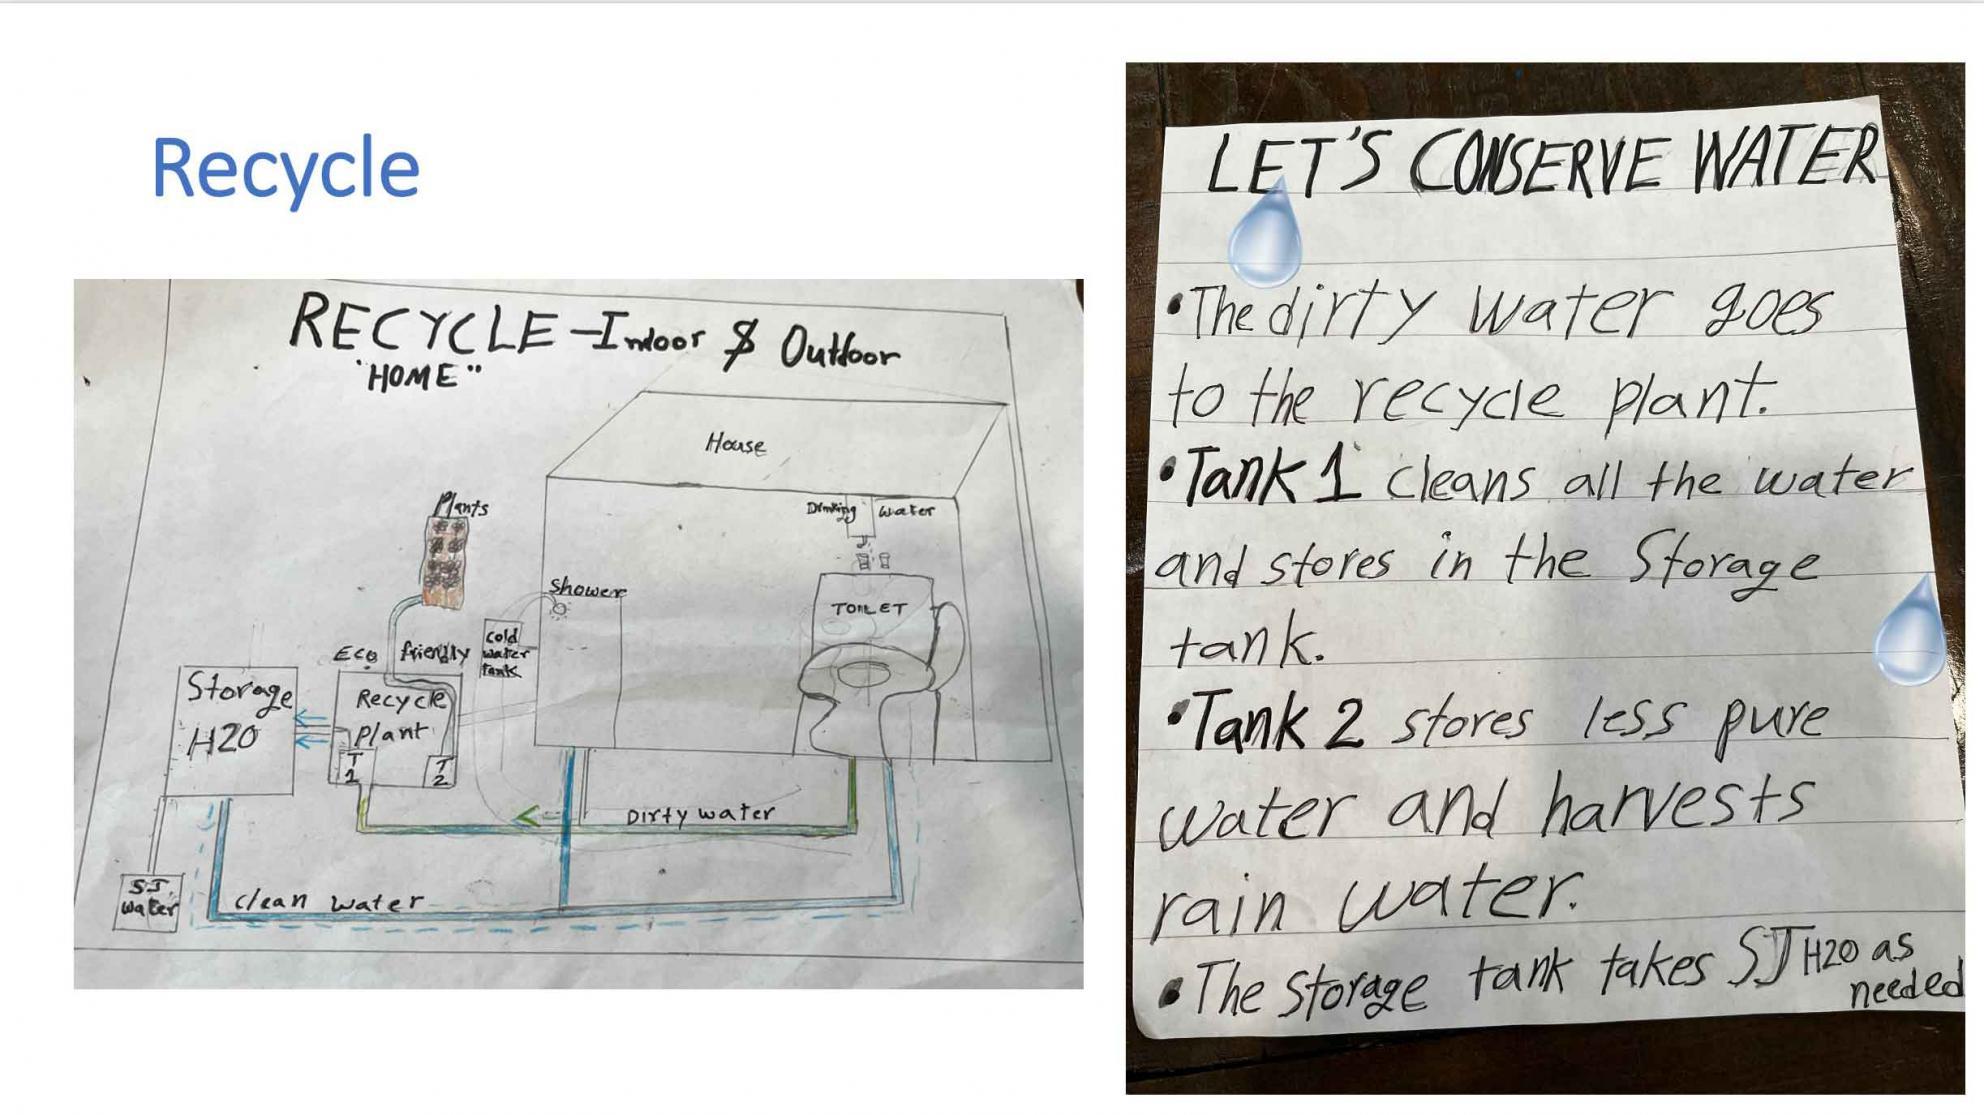 Recycle
RECYCLE - Indoor & Outdoor
"HOME"
House
Plants
Drinking water
Shower
TOILET
cold
water
tank
Eco friendly
Storage
H20
Recycle
plant
T
1
T
2
Dirty water
S.J.
water
clean water
LET'S CONSERVE WATER
•The dirty water goes
to the recycle plant.
•Tank 1 cleans all the water
and stores in the Storage
tank.
•Tank 2 stores less pure
water and harvests
rain water.
•The storage tank takes SJ H20 as
needed